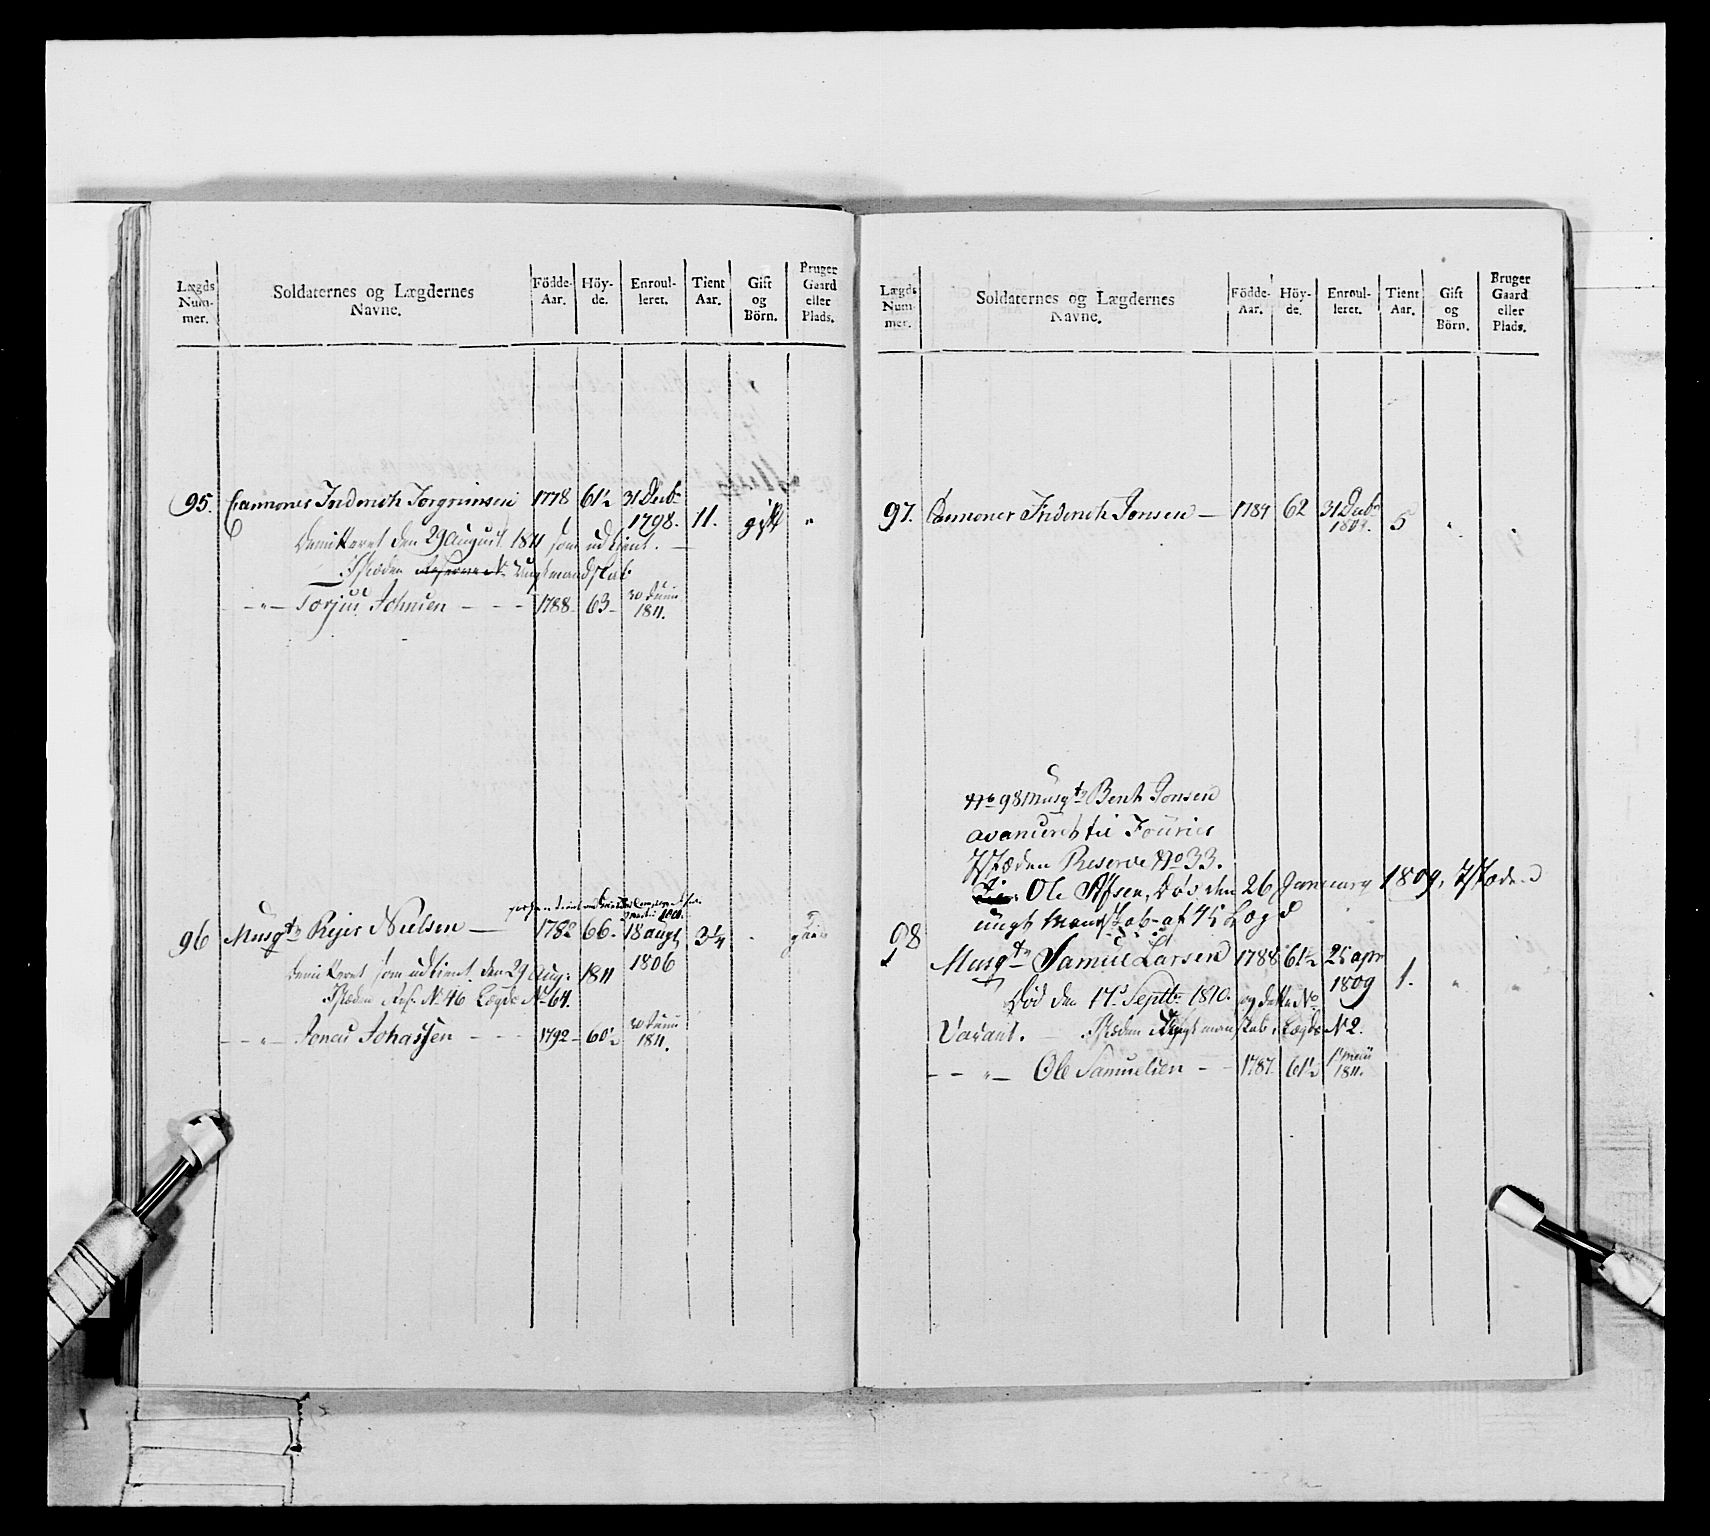 Lægds Num- mer.
Soldaternes og Lægdernes Navne.
Födde- Aar.
Höy- de.
Enroul- leret.
Tient Aar.
Gift og Börn.
Bruger Gaard eller Plads.
95. Cannoner Friderich Torgrimsen 1778 61½ 31 Decb. 1798. 11. gift "
Demitteret den 29 August 1811 som udtient. —
I Stæden Reserve No. Ungtmandskab
— " — Torjus Johnsen — — — 1788 63 — 30 Junii 1811.
96 Musqt. Rejer Nielsen — 1782 66. 18 augt 1806 3¼ -
demitteret som udtient den 29 Aug: 1811
I Stæden Res. No. 46 Lægde No. 64.
— " — Jonas Johassen — — — 1792 — 60½ 30 Junii 1811.
Lægds Num- mer.
Soldaternes og Lægdernes Navne.
Födde- Aar.
Höy- de.
Enroul- leret.
Tient Aar.
Gift og Börn.
Bruger Gaard eller Plads.
97. Cannoner Friderich Jonsen — 1784 62 31 Decb. 1804. 5 " .
No 98 Musqt. Bent Jonsen
avanceret til Fourier
I Stæden Reserve No 33.
Ole Olsen, Död den 26 January 1809, I Stæden
ungt Mandskab af 45 Lægd
98 Musqt. Samuel Larsen 1788 61½ 25 apr 1809 1. " "
Död den 17d Septb. 1810. og dette No
Vacant. — I Stæden Ungt manskab, Lægde No 2.
— — " — Ole Samuelsen — — 1787 61½ 1 Maii 1811.